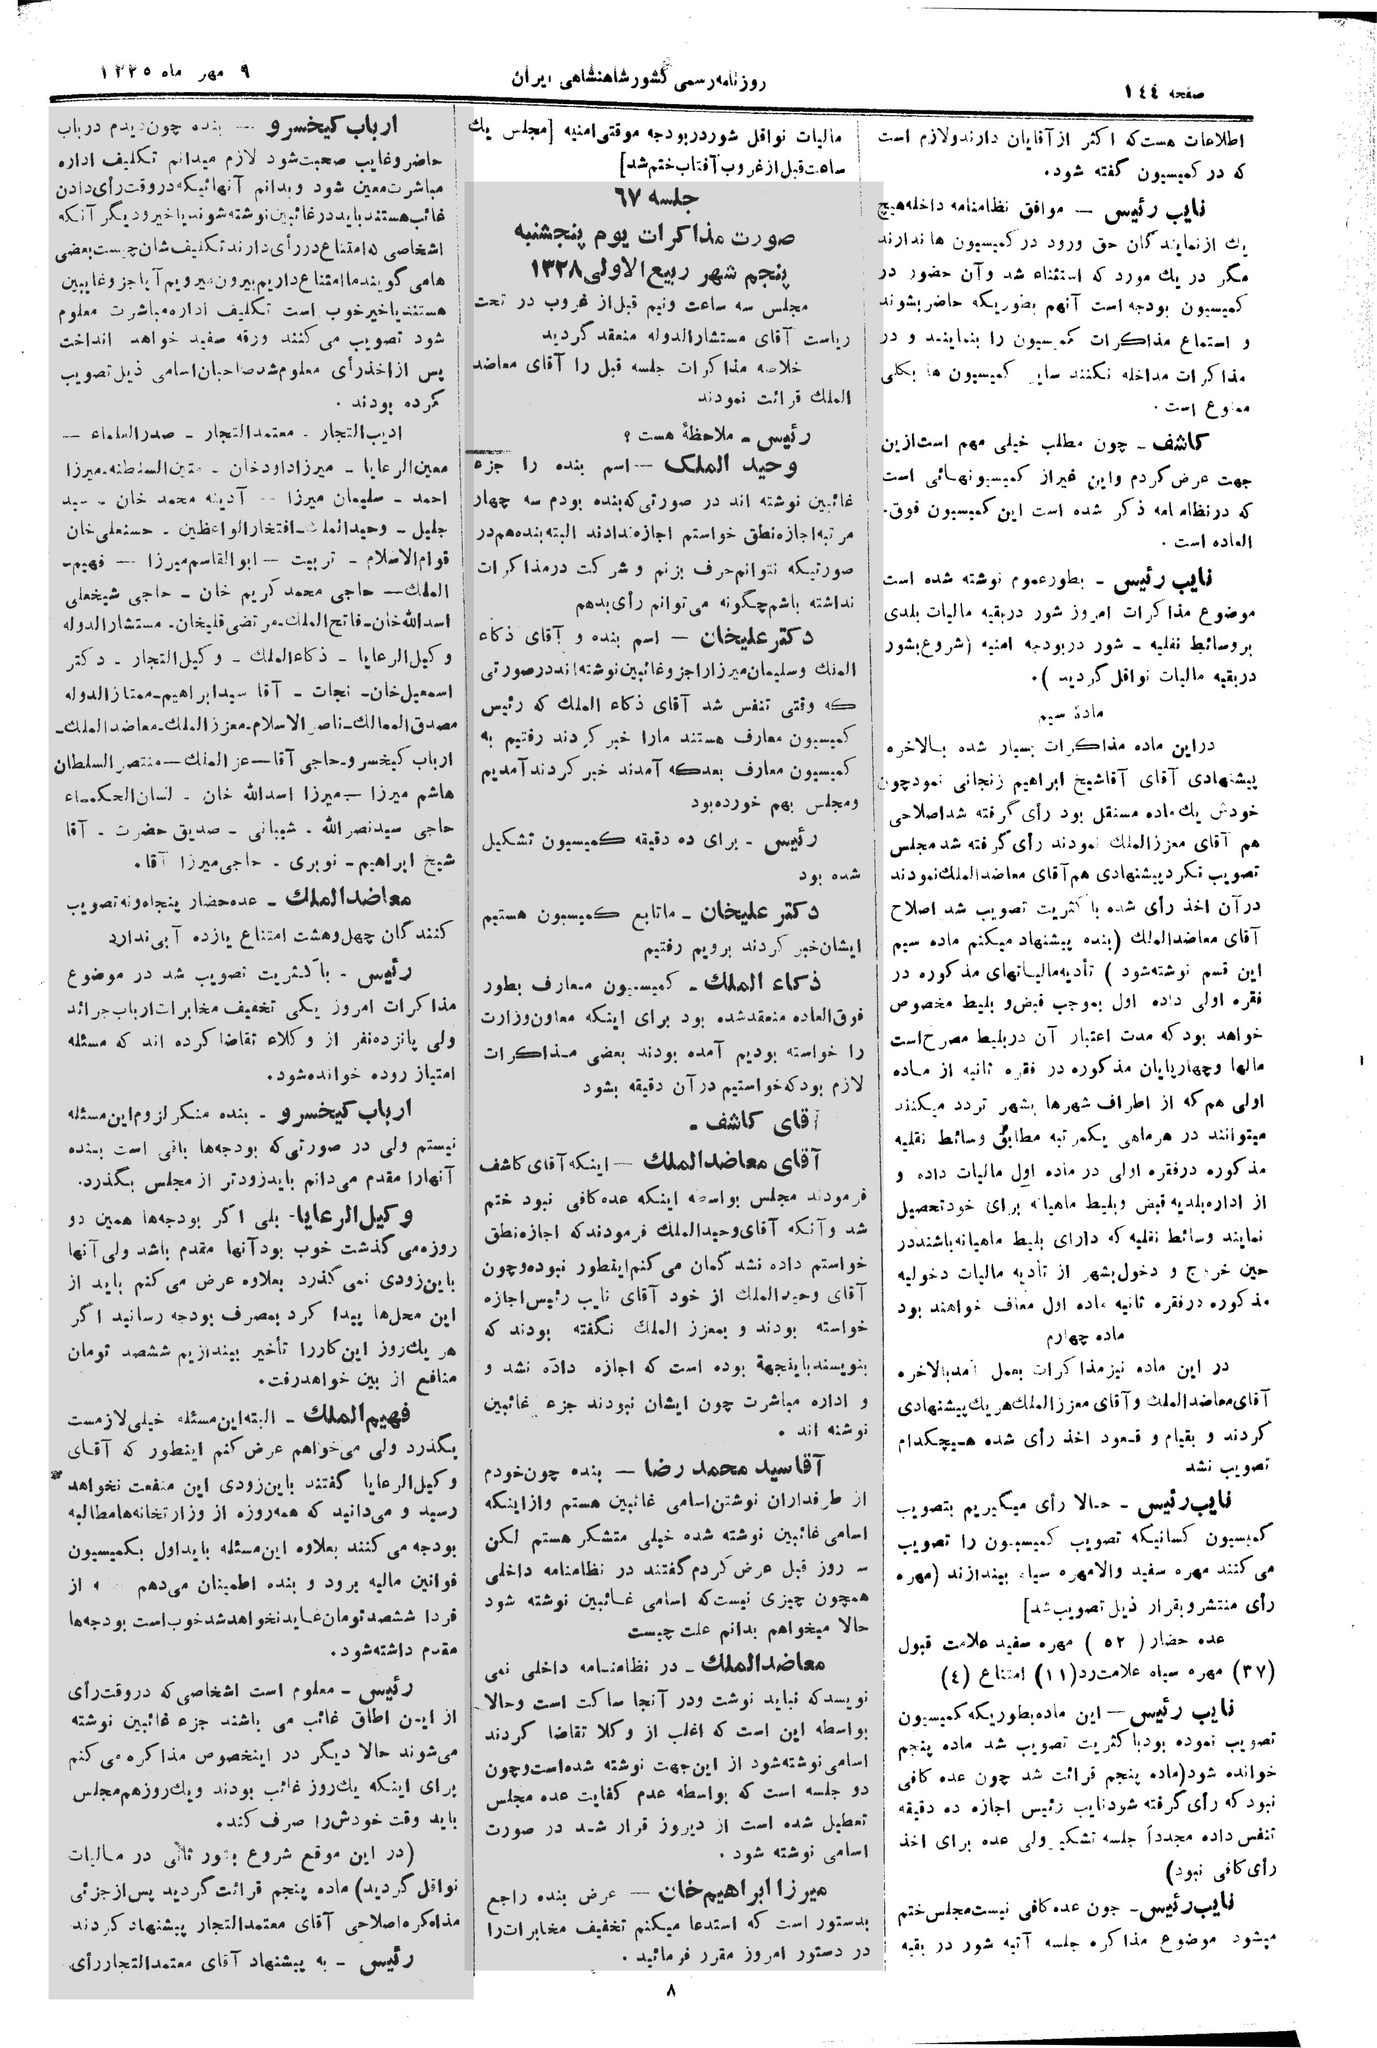 صفحه ۱٤٤
روزنامه رسمی کشور شاهنشاهی ایران
۹ مهر ماه ۱۳۳۵
اطلاعات هست که اکثر از آقایان دارند و لازم است
که در کمیسیون گفته شود.
نایب رئیس — موافق نظامنامه داخله هیچ
یك از نمایندگان حق ورود در کمیسیون ها ندارند
مگر در یك مورد که استثناء شد و آن حضور در
کمیسیون بودجه است آنهم بطوریکه حاضر بشوند
و استماع مذاکرات کمیسیون را بنمایند و در
مذاکرات مداخله نکنند سایر کمیسیون ها بکلی
ممنوع است.
کاشف - چون مطلب خیلی مهم است ازین
جهت عرض کردم و این غیر از کمیسیونهائی است
که در نظامنامه ذکر شده است این کمیسیون فوق-
العاده است.
نایب رئیس - بطور عموم نوشته شده است
موضوع مذاکرات امروز شور در بقیه مالیات بلدی
بر وسائط نقلیه - شور در بودجه امنیه (شروع بشور
در بقیه مالیات نوافل گردید).
ماده سیم
در این ماده مذاکرات بسیار شده بالاخره
پیشنهادی آقای آقا شیخ ابراهیم زنجانی نمود چون
خودش یك ماده مستقل بود رأی گرفته شد اصلاحی
هم آقای معزز الملك نمودند رأی گرفته شد مجلس
تصویب نکرد پیشنهادی هم آقای معاضد الملك نمودند
در آن اخذ رأی شده با کثریت تصویب شد اصلاح
آقای معاضد الملك (بنده پیشنهاد میکنم ماده سیم
این قسم نوشته شود) تأدیه مالیاتهای مذکوره در
فقره اولی داده اول بموجب قبض و بلیط مخصوص
خواهد بود که مدت اعتبار آن در بلیط مصرح است
مالها و چهارپایان مذکوره در فقره ثانیه از ماده
اولی هم که از اطراف شهرها بشهر تردد میکنند
میتوانند در هر ماهی یکمرتبه مطابق وسائط نقلیه
مذکوره در فقره اولی در ماده اول مالیات داده و
از اداره بلدیه قبض و بلیط ماهیانه برای خود تحصیل
نمایند وسائط نقلیه که دارای بلیط ماهیانه باشند در
حین خروج و دخول بشهر از تأدیه مالیات دخولیه
مذکوره در فقره ثانیه ماده اول معاف خواهند بود
ماده چهارم
در این ماده نیز مذاکرات بعمل آمد بالاخره
آقای معاضد الملك و آقای معزز الملك هر یك پیشنهادی
کردند و بقیام و قعود اخذ رأی شده هیچکدام
تصویب نشد
نایب رئیس - حالا رأی میگیریم بتصویب
کمیسیون کسانیکه تصویب کمیسیون را تصویب
می کنند مهره سفید والا مهره سیاه بیندازند (مهره
رأی منتشر و بقرار ذیل تصویب شد]
عده حضار (۵۲) مهره سفید علامت قبول
(۳۷) مهره سیاه علامت رد (۱۱) امتناع (٤)
نایب رئیس — این ماده بطوریکه کمیسیون
تصویب نموده بود با کثریت تصویب شد ماده پنجم
خوانده شود (ماده پنجم قرائت شد چون عده کافی
نبود که رأی گرفته شود نایب رئیس اجازه ده دقیقه
تنفس داده مجدداً جلسه تشکیل ولی عده برای اخذ
رأی کافی نبود)
نایب رئیس - چون عده کافی نیست مجلس ختم
میشود موضوع مذاکره جلسه آتیه شور در بقیه
مالیات نوافل شور در بودجه موقتی امنیه [مجلس یك
ساعت قبل از غروب آفتاب ختم شد]
جلسه ٦٧
صورت مذاکرات یوم پنجشنبه
پنجم شهر ربیع الاولی ۱۳۲۸
مجلس سه ساعت و نیم قبل از غروب در تحت
ریاست آقای مستشار الدوله منعقد گردید
خلاصه مذاکرات جلسه قبل را آقای معاضد
الملك قرائت نمودند
رئیس - ملاحظهٔ هست؟
وحید الملک — اسم بنده را جزء
غائبین نوشته اند در صورتی که بنده بودم سه چهار
مرتبه اجازه نطق خواستم اجازه ندادند البته بنده هم در
صورتیکه نتوانم حرف بزنم و شرکت در مذاکرات
نداشته باشم چگونه می توانم رأی بدهم
دکتر علیخان — اسم بنده و آقای ذکاء
الملك و سلیمان میرزا را جزو غائبین نوشته اند در صورتی
که وقتی تنفس شد آقای ذکاء الملك که رئیس
کمیسیون معارف هستند ما را خبر کردند رفتیم به
کمیسیون معارف بعد که آمدند خبر کردند آمدیم
و مجلس بهم خورده بود
رئیس - برای ده دقیقه کمیسیون تشکیل
شده بود
دکتر علیخان - ما تابع کمیسیون هستیم
ایشان خبر کردند برویم رفتیم
ذکاء الملك - کمیسیون معارف بطور
فوق العاده منعقد شده بود برای اینکه معاون وزارت
را خواسته بودیم آمده بودند بعضی مذاکرات
لازم بود که خواستیم در آن دقیقه بشود
آقای کاشف -
آقای معاضد الملك — اینکه آقای کاشف
فرمودند مجلس بواسطه اینکه عده کافی نبود ختم
شد و آنکه آقای وحید الملك فرمودند که اجازه نطق
خواستم داده نشد گمان می کنم اینطور نبوده و چون
آقای وحید الملك از خود آقای نایب رئیس اجازه
خواسته بودند و بمعزز الملك نگفته بودند که
بنویسند باینجهة بوده است که اجازه داده نشد و
و اداره مباشرت چون ایشان نبودند جزء غائبین
نوشته اند.
آقا سید محمد رضا — بنده چون خودم
از طرفداران نوشتن اسامی غائبین هستم و از اینکه
اسامی غائبین نوشته شده خیلی متشکر هستم لکن
سه روز قبل عرض کردم گفتند در نظامنامه داخلی
همچون چیزی نیست که اسامی غائبین نوشته شود
حالا میخواهم بدانم علت چیست
معاضد الملك - در نظامنامه داخلی نمی
نویسد که نباید نوشت و در آنجا ساکت است و حالا
بواسطه این است که اغلب از وکلا تقاضا کردند
اسامی نوشته شود از این جهت نوشته شده است و چون
دو جلسه است که بواسطه عدم کفایت عده مجلس
تعطیل شده است از دیروز قرار شد در صورت
اسامی نوشته شود.
میرزا ابراهیم خان — عرض بنده راجع
بدستور است که استدعا میکنم تخفیف مخابرات را
در دستور امروز مقرر فرمائید.
ارباب کیخسرو — بنده چون دیدم در باب
حاضر و غایب صحبت شود لازم میدانم تکلیف اداره
مباشرت معین شود و بدانم آنهائیکه در وقت رأی دادن
غائب هستند باید در غائبین نوشته شوند یا خیر و دیگر آنکه
اشخاصی که امتناع در رأی دارند تکلیف شان چیست بعضی
ها می گویند ما امتناع داریم بیرون میرویم آیا جزو غایبین
هستند یا خیر خوب است تکلیف اداره مباشرت معلوم
شود تصویب می کنند ورقه سفید خواهد انداخت
پس از اخذ رأی معلوم شد صاحبان اسامی ذیل تصویب
کرده بودند.
ادیب التجار - معتمد التجار - صدر العلماء —
معین الرعایا - میرزا داود خان - متین السلطنه - میرزا
احمد - سلیمان میرزا — آدینه محمد خان - سید
جلیل - وحید الملك - افتخار الواعظین - حسنعلی خان
قوام الاسلام - تربیت — ابو القاسم میرزا — فهیم-
الملك — حاجی محمد کریم خان - حاجی شیخعلی
اسد الله خان - فاتح الملك - مرتضی قلیخان - مستشار الدوله
وکیل الرعایا - ذکاء الملك - وکیل التجار - دکتر
اسمعیل خان - نجات - آقا سید ابراهیم - ممتاز الدوله
مصدق الممالك - ناصر الاسلام - معزز الملك - معاضد الملك -
ارباب کیخسرو - حاجی آقا — عز الملك — منتصر السلطان
هاشم میرزا — میرزا اسد الله خان - لسان الحکماء
حاجی سید نصر الله - شیبانی - صدیق حضرت - آقا
شیخ ابراهیم - نوبری - حاجی میرزا آقا.
معاضد الملك - عده حضار پنجاه و نه تصویب
کنندگان چهل و هشت امتناع یازده آبی ندارد
رئیس - با کثریت تصویب شد در موضوع
مذاکرات امروز یکی تخفیف مخابرات ارباب جرائد
ولی پانزده نفر از وکلاء تقاضا کرده اند که مسئله
امتیاز روده خوانده شود.
ارباب کیخسرو - بنده منکر لزوم این مسئله
نیستم ولی در صورتی که بودجه ها باقی است بنده
آنها را مقدم می دانم باید زودتر از مجلس بگذرد.
وکیل الرعایا - بلی اگر بودجه ها همین دو
روزه می گذشت خوب بود آنها مقدم باشد ولی آنها
باین زودی نمی گذرد بعلاوه عرض می کنم باید از
این محل ها پیدا کرد بمصرف بودجه رسانید اگر
هر یك روز این کار را تأخیر بیندازیم ششصد تومان
منافع از بین خواهد رفت.
فهیم الملك - البته این مسئله خیلی لازمست
بگذرد ولی می خواهم عرض کنم اینطور که آقای
وکیل الرعایا گفتند باین زودی این منفعت نخواهد
رسید و می دانید که همه روزه از وزارتخانه ها مطالبه
بودجه می کنند بعلاوه این مسئله باید اول بکمیسیون
قوانین مالیه برود و بنده اطمینان می دهم که از
فردا ششصد تومان عاید نخواهد شد خوب است بودجه ها
مقدم داشته شود.
رئیس - معلوم است اشخاصی که در وقت رأی
از این اطاق غائب می باشند جزء غائبین نوشته
می شوند حالا دیگر در اینخصوص مذاکره می کنم
برای اینکه یك روز غائب بودند و یك روز هم مجلس
باید وقت خودش را صرف کند.
(در این موقع شروع بشور ثانی در مالیات
نوافل گردید) ماده پنجم قرائت گردید پس از جزئی
مذاکره اصلاحی آقای معتمد التجار پیشنهاد کردند
رئیس - به پیشنهاد آقای معتمد التجار رأی
۸